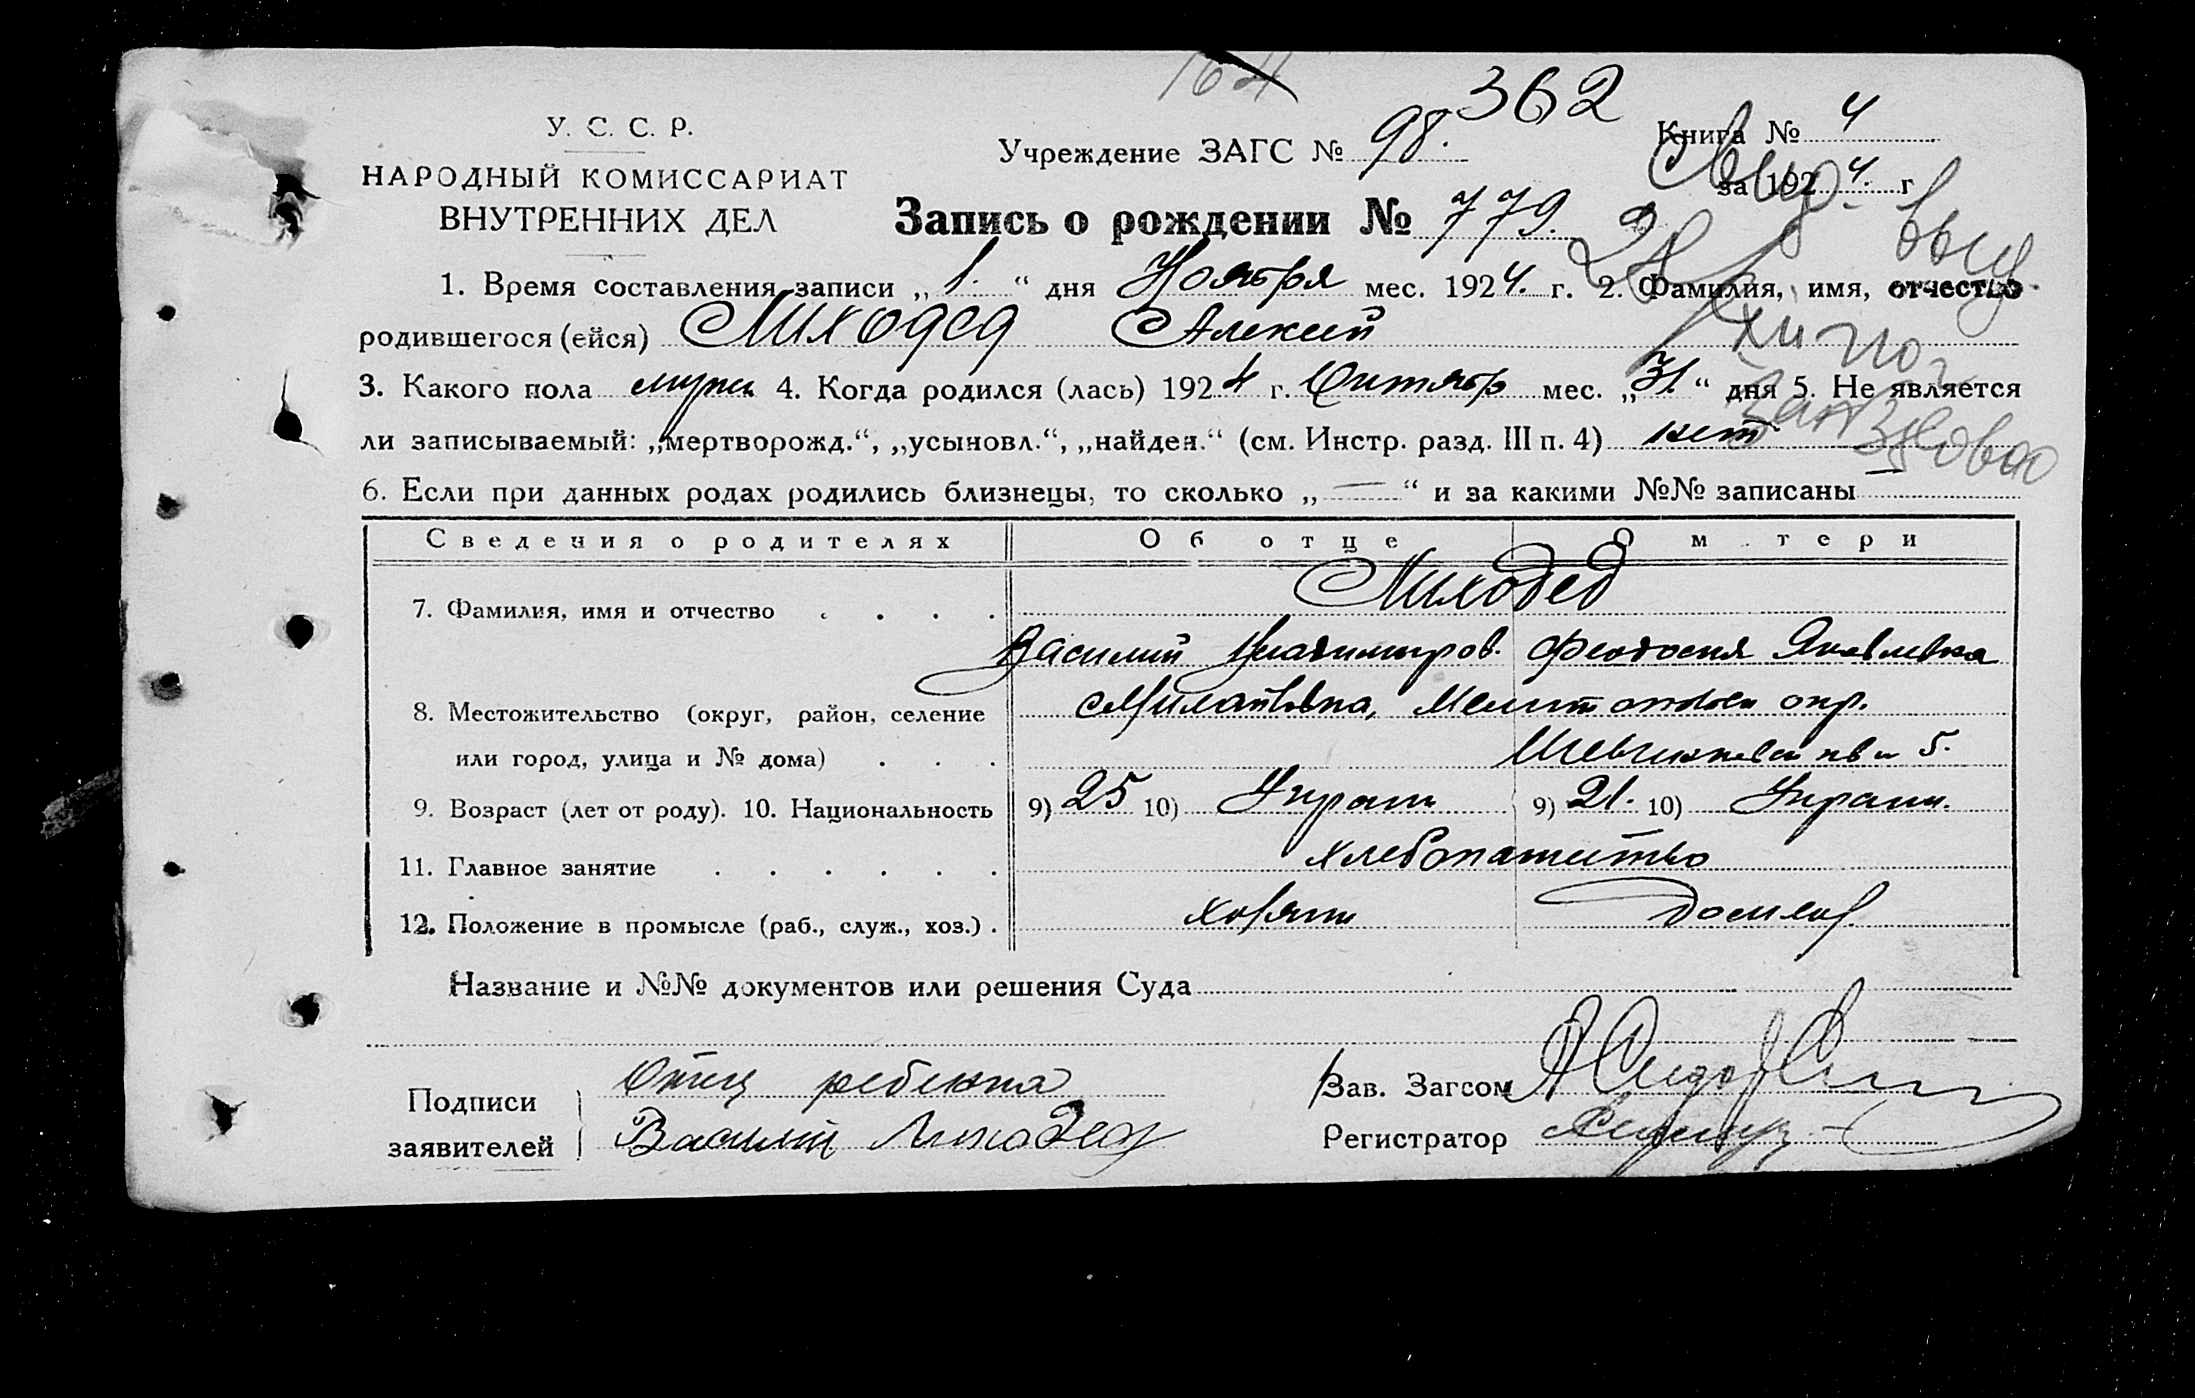 362
У. С. С. Р.
НАРОДНЫЙ КОМИССАРИАТ
ВНУТРЕННИХ ДЕЛ
Учреждение ЗАГС № 98.
Книга № 4
за 1924. г
Запись о рождении № 779.
1. Время составления записи „1.“ дня Ноября мес. 1924. г. 2. Фамилия, имя, отчество
родившегося (ейся) Лиходед Алексей
3. Какого пола мужск 4. Когда родился (лась) 1924 г. Октябр мес. „31.“ дня 5. Не является
ли записываемый: „мертворожд.“, „усыновл.“, „найден.“ (см. Инстр. разд. III п. 4) нет
6. Если при данных родах родились близнецы, то сколько „—“ и за какими №№ записаны —
Сведения о родителях Об отце О м тери
7. Фамилия, имя и отчество Лиходед
Василий Владимиров. Феодосия Яковлевна
8. Местожительство (округ, район, селение
или город, улица и № дома) окр. 5.
9. Возраст (лет от роду). 10. Национальность 9) 25 10) Украин 9) 21. 10) Украин.
11. Главное занятие хлебопашество
12. Положение в промысле (раб., служ., хоз.) хозяин домхоз.
Название и №№ документов или решения Суда
Подписи
заявителей
Отец ребенка
Василий Лиходед
Зав. Загсом
Регистратор